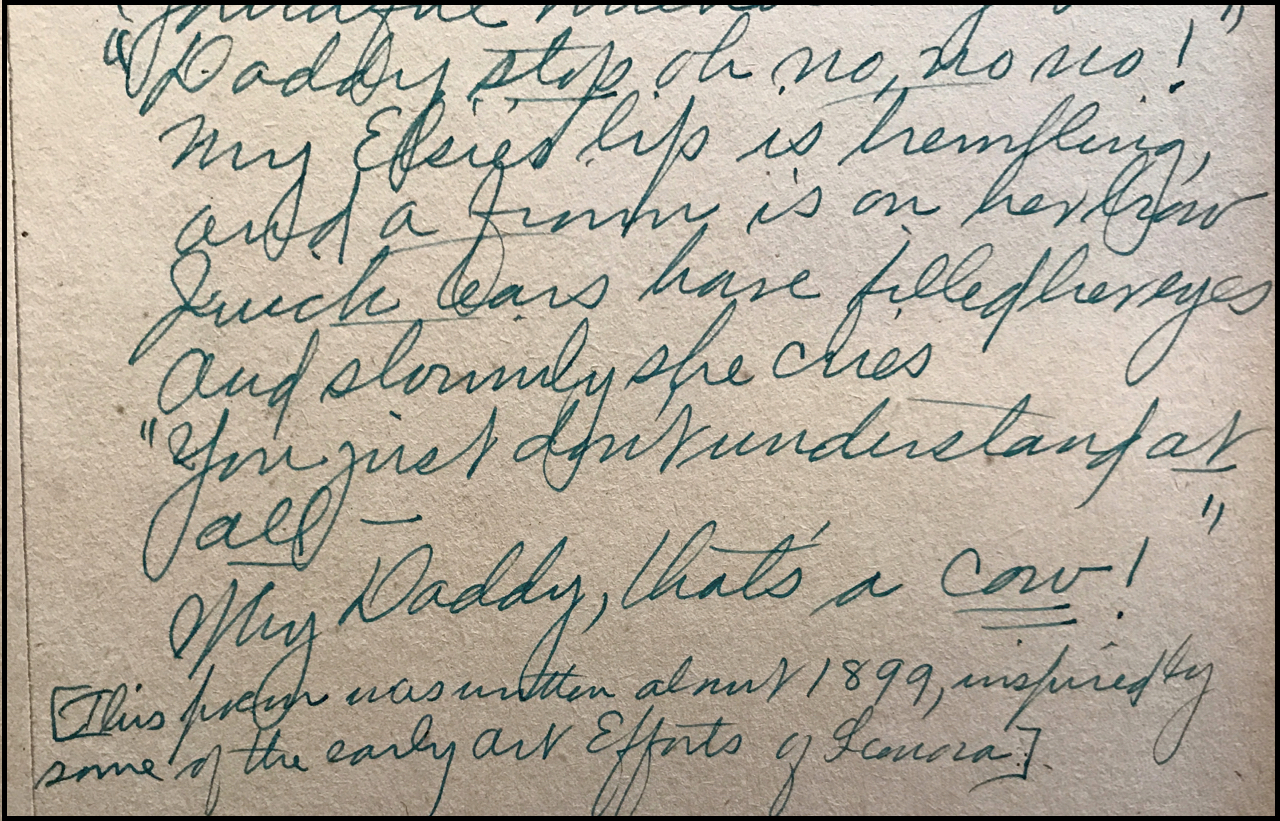 "Daddy stop oh no, no no!
My Elsie's lip is trembling,
and a frown is on her brow
Quick tears have filled her eyes
And stormily she cries
"You just don't understand at
all —
Why Daddy, that's a cow!"
[This poem was written about 1899, inspired by
some of the early art Efforts of Leonora]